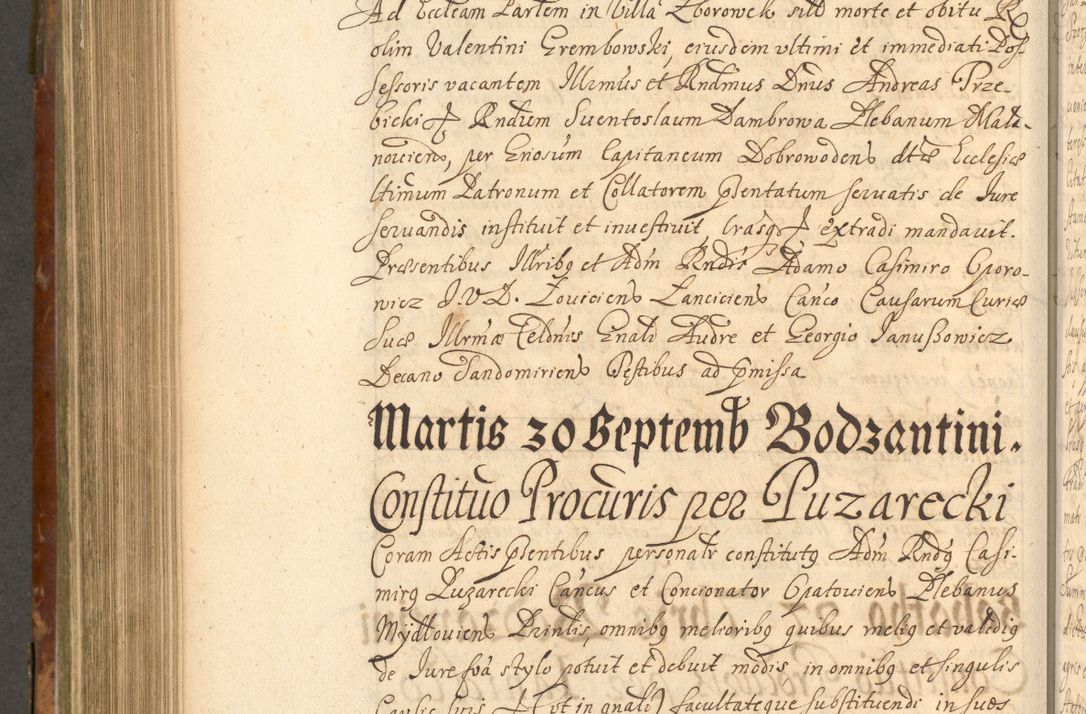 Ad Eccleam Parlem in Villa Zborowek sitt morte et obitu R
olim Valentini Grembowski, eiusdem vltimi et immediati Pos-
sessoris vacantem Illrmus et Rndmus Dnus Andreas Trze-
bicki Rndum Suentoslaum Dambrowa Plebanum Mala-
nouiens, per Gnosum Capitaneum Dobrowodens dtæ Ecclesiæ
ltimum Patronum et Collatorem pſentatum seruatis de Jure
seruandis instituit et inuestiuit, lrasq extradi mandauit.
Præsentibus Illribq et Adm Rndis Adamo Casimiro Oporo-
wicz J.V.D. Louiciens Lanciciens Canco Causarum Curiæ
suæ Illrmæ Celdnis Gnali Audre et Georgio Januszowicz
Decano Sandomiriens Testibus ad pmissa
Martis 30 Septemb Bodzantini.
Constituo Procuris per Puzarecki
Coram Actis pſentibus personalr constitutq Adm Rndq Casi-
mirq Puzarecki Cancus et Concionator Opatouiens Plebanus
Mydlouiens Prinlis, omnibq melioribq quibus meliq et validiq
de Jure foã stylo potuit et debuit modis, in omnibq et singulis
Causis suis (vt in gnali) facultateque substituendi in sues